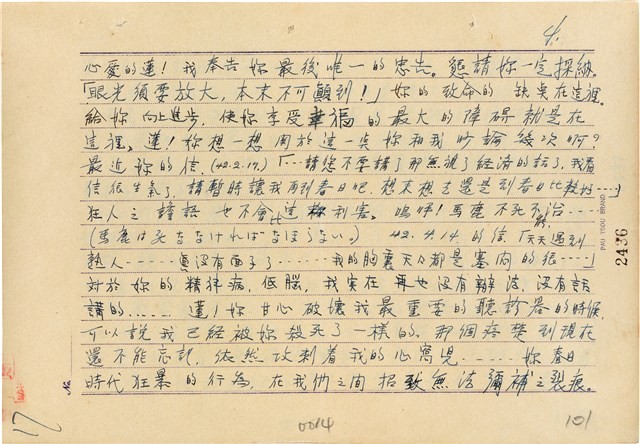 4.
心愛的蓮！我奉告妳最後唯一的忠告。懇請妳一定採納。
「眼光須要放大，本末不可顛到！」妳的致命的缺点在這裡。
給妳向上進步，使妳享受幸福的最大的障碍就是在
這裡。蓮！妳想一想関於這一点妳和我吵論幾次啊？
最近妳的信．(42.2.17.)「…請您不要講了那無視了經濟的話了，我看
信很生氣了，請暫時讓我再到春日吧．想來想去還是到春日比較好…」
狂人之譫語也不會比這称利害。嗚呼！馬鹿不死不能治……
(馬鹿は死ななければなほらない。) 42.4.14.的信．「天天遇到
熟人……真沒有面子了……我的胸裏天天都是塞向的很……」
對於妳的精神病，低腦，我实在再也沒有辦法，沒有話
講的……蓮！妳甘心破壞我最重要的聽診器的時候，
可以說我已經被妳殺死了一樣的．那個痛楚到現在
還不能忘記，依然攻刺着我的心窩兒……妳春日
時代狂暴的行為，在我們之间招致無法彌補之裂痕。
No.
17
0014
101
2436